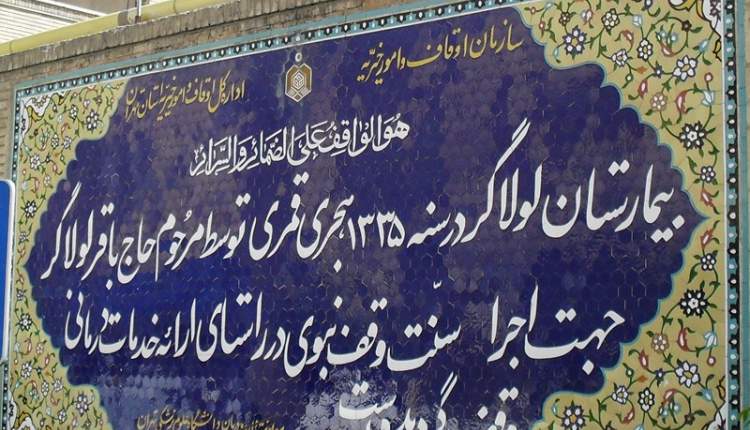 سازمان اوقاف و امور خیریه
اداره کل اوقاف و امور خیریه استان تهران
هوالواقف علی الضمائر والسرائر
بیمارستان لولاگر در سنه ۱۳۳۵ هجری قمری توسط مرحوم حاج باقر لولاگر
جهت اجرا سنّت وقف نبوی در راستای ارائه خدمات درمانی
وقف گردیده است
دانشگاه علوم پزشکی تهران